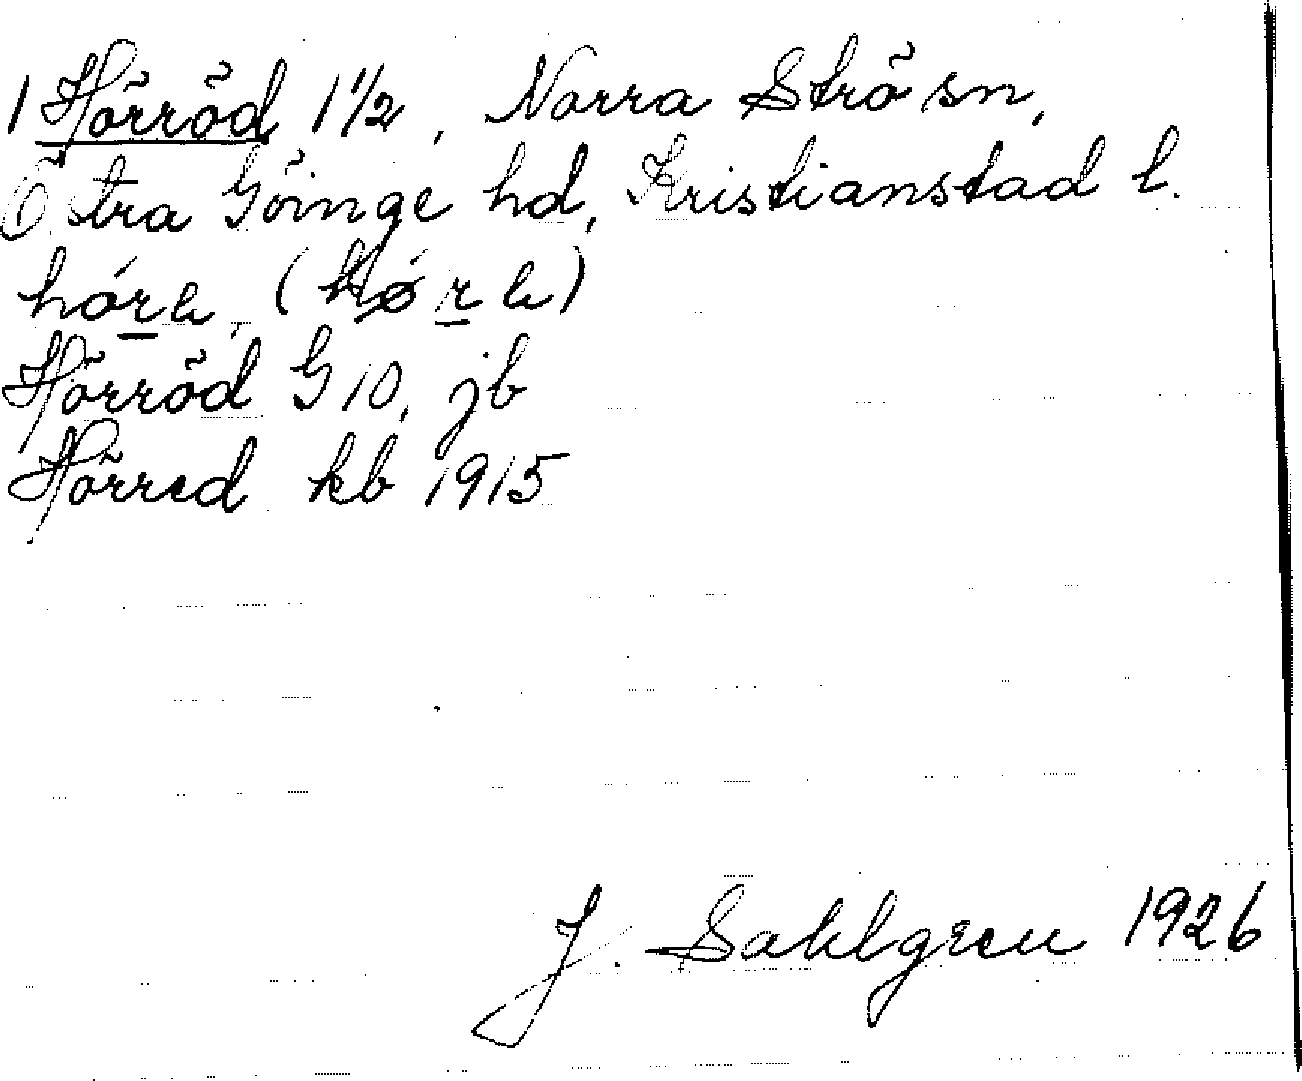 1 Hörröd 1 1/2, Norra Strö sn,
Östra Göinge hd, Kristianstad l.
Hörröd G 10, jb
Hörred kb 1915
J. Sahlgren 1926